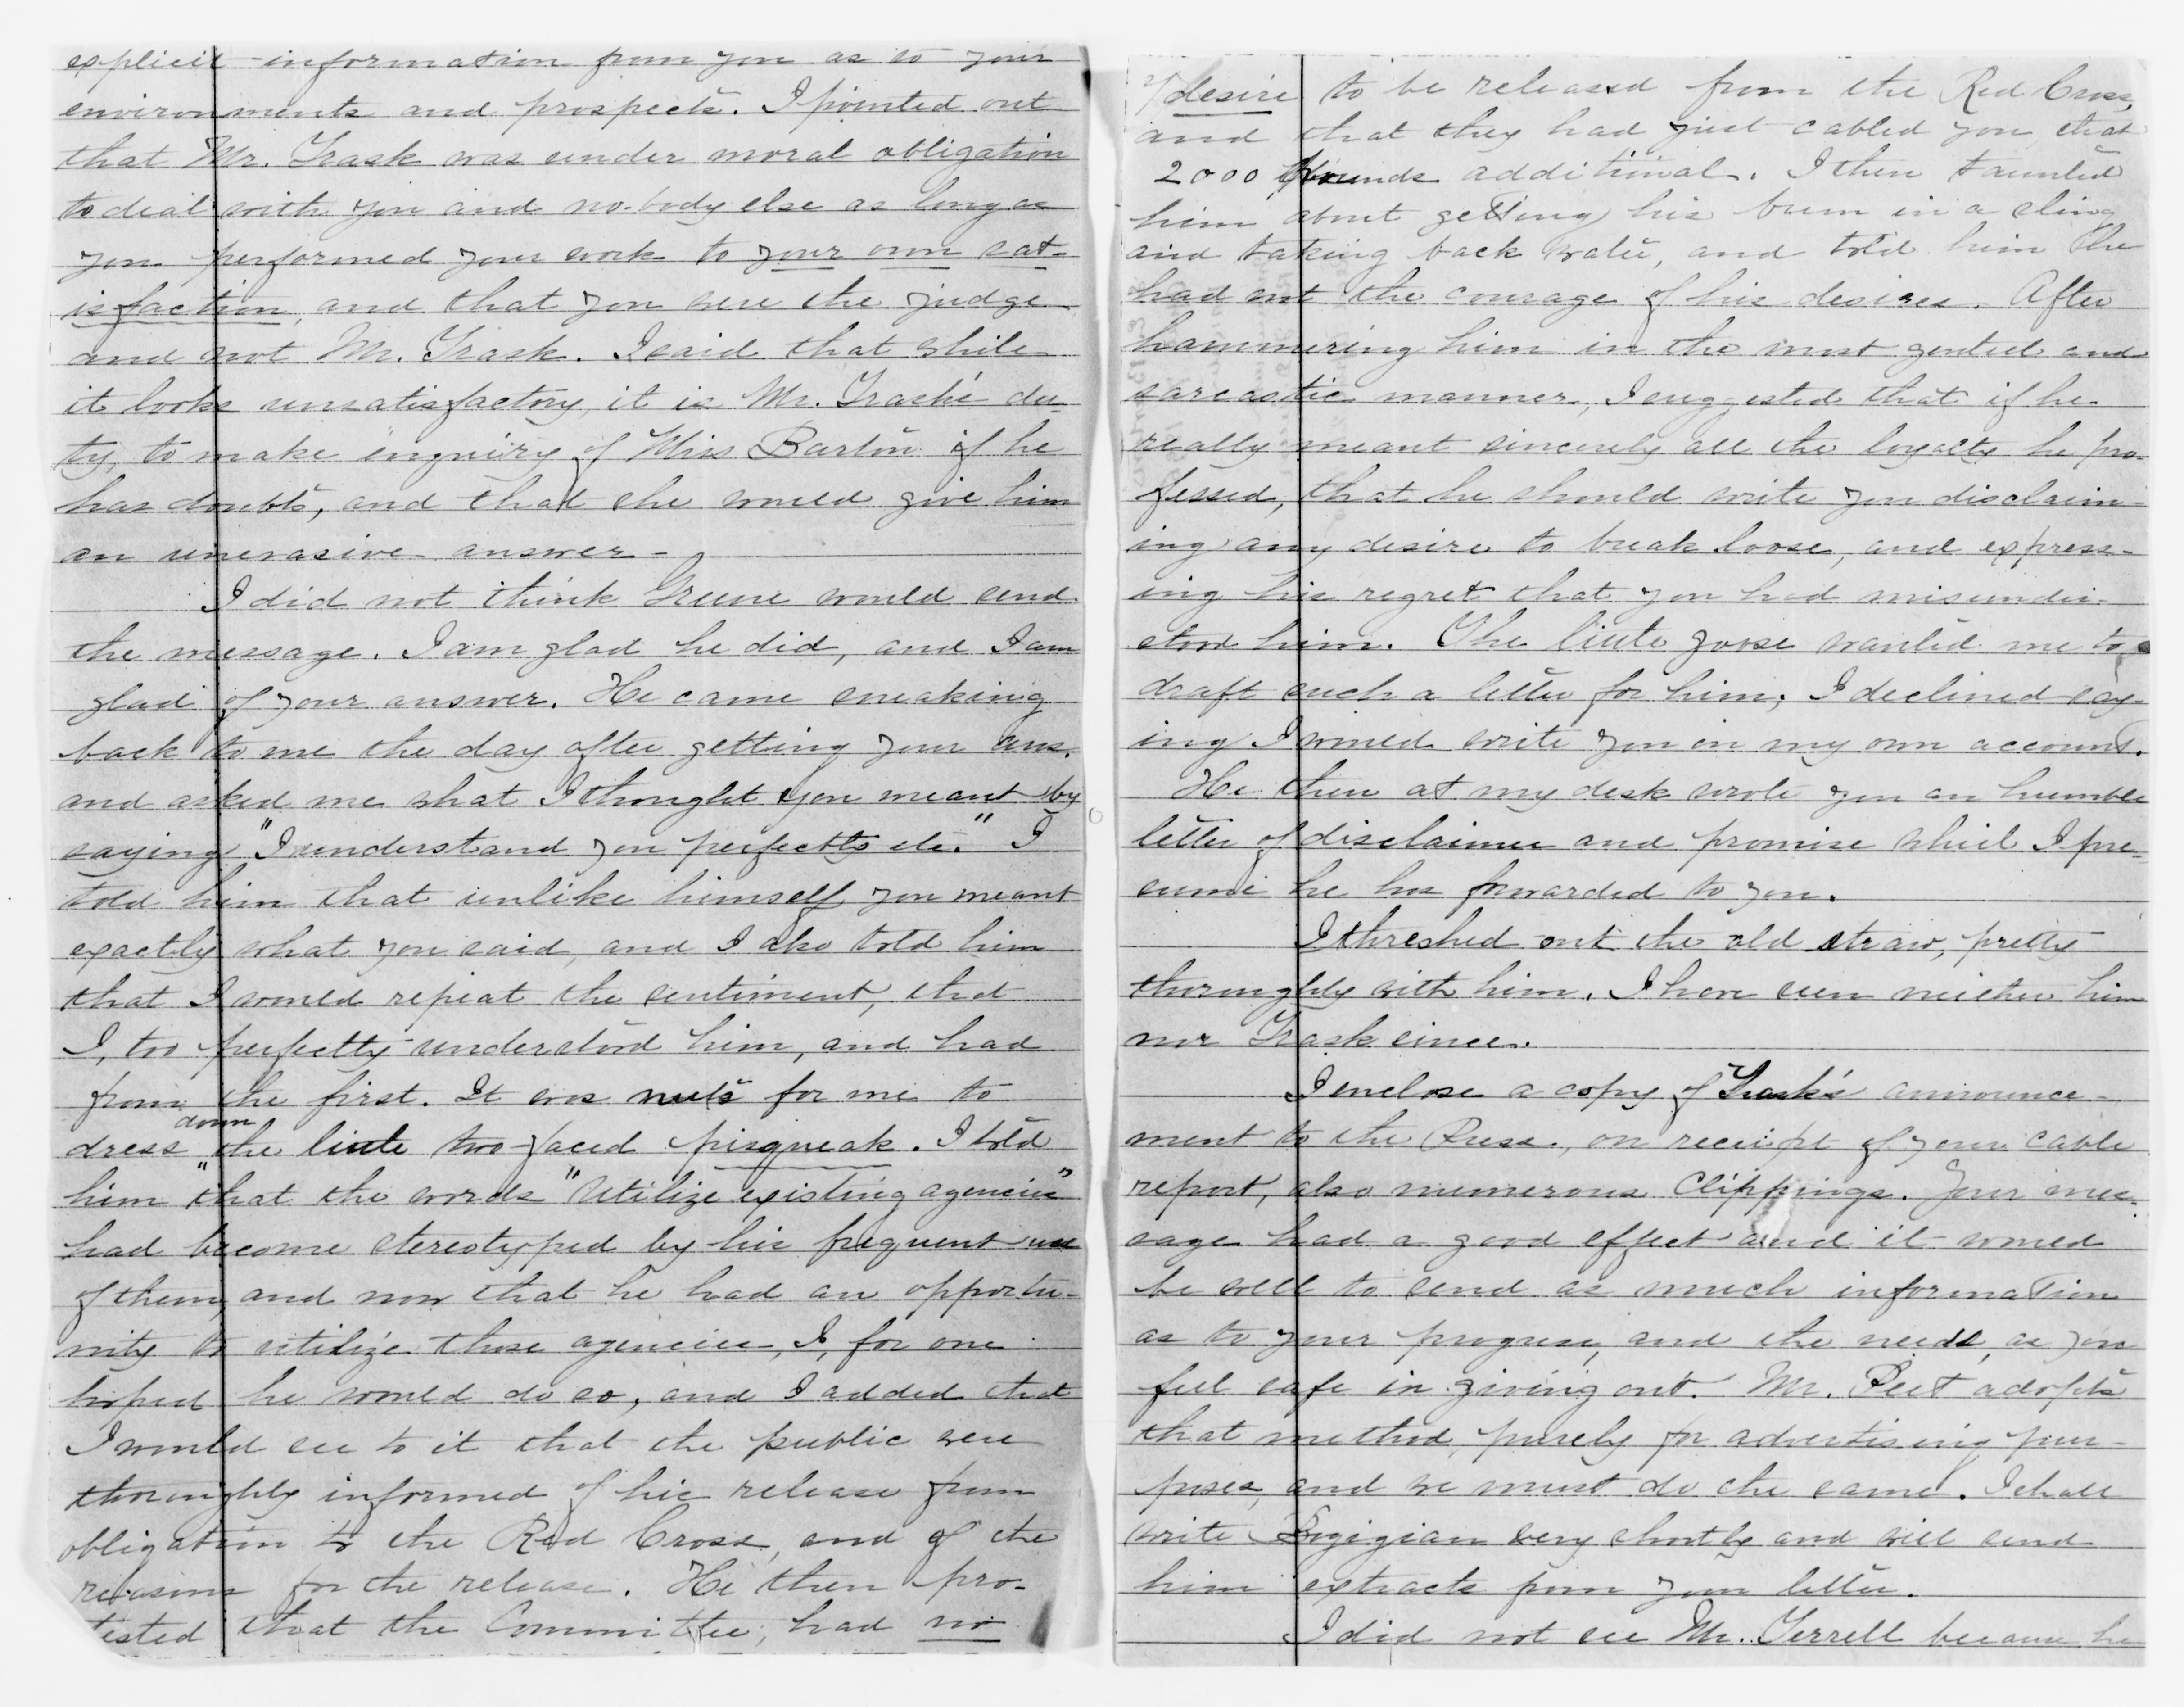 explicit information from you as to your
environments and prospects. I pointed out
that Mr. Trask was under moral obligation
to deal with you and no-body else as long as
you performed your work to your own sat-
isfaction, and that you were the judge
and not Mr. Trask. I said that while
it looks unsatisfactory, it is Mr. Trask's du-
ty, to make inquiry of Miss Barton if he
has doubts, and that she would give him
an unevasive answer -
I did not think Greene would send
the message. I am glad he did, and I am
glad of your answer. He came sneaking
back to me the day after getting your ans.
and asked me what I thought you meant by
saying "I understand you perfectly etc." I
told him that unlike himself you meant
exactly what you said, and I also told him
that I would repeat the sentiment, that
I, too perfectly understood him, and had
from the first. It was nuts for me to
dress down the little two-faced pisqueak. I told
him "that the words "utilize existing agencies"
had become stereotyped by his frequent use
of them, and now that he had an opportu-
nity to utilize those agencies, I, for one
hoped he would do so, and I added that
I would see to it that the public were
thoroughly informed of his release from
obligation to the Red Cross, and of the
reasons for the release. He then pro-
tested that the Committee, had no
desire to be released from the Red Cross,
and that they had just cabled you that
2000 pounds additional. I then taunted
him about getting his bum in a sling
and taking back water, and told him the
had not the courage of his desires. After
hammering him in the most genteel and
sarcastic manner, I suggested that if he
really meant sincerely all the loyalty he pro-
fessed, that he should write you disclaim-
ing any desire to break loose, and express-
ing his regret that you had misunder-
stood him. The little goose wanted me to
draft such a letter for him; I declined say-
ing I would write you on my own account.
He then at my desk wrote you an humble
letter of disclaimer and promise which I pre-
sume he has forwarded to you.
I threshed out the old straw, pretty
thoroughly with him. I have seen neither him
nor Trask since.
I enclose a copy of Trask's announce-
ment to the Press., on receipt of your cable
report, also numerous Clippings. Your mes-
sage had a good effect and it would
be well to send as much information
as to your progress, and the needs, as you
feel safe in giving out. Mr. Peet adopts
that method, purely for advertising pur-
poses, and we must do the same. I shall
write very shortly and will send
him extracts from your letter.
I did not see Mr. Terrell because he